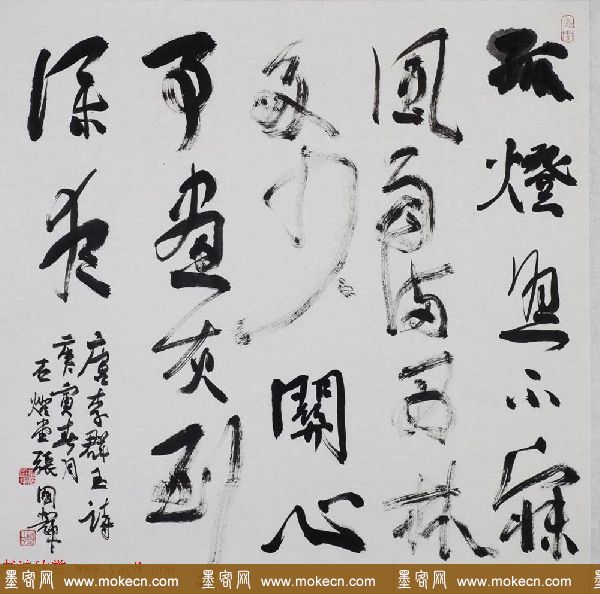 孤燈照不寐
風雨滿西林
多少關心
事畫灰到
深夜
唐李群玉詩
庚寅春月
堂張國輝
墨客网 www.mokecn.com 墨客网 www.mokecn.com 墨客网 www.mokecn.com